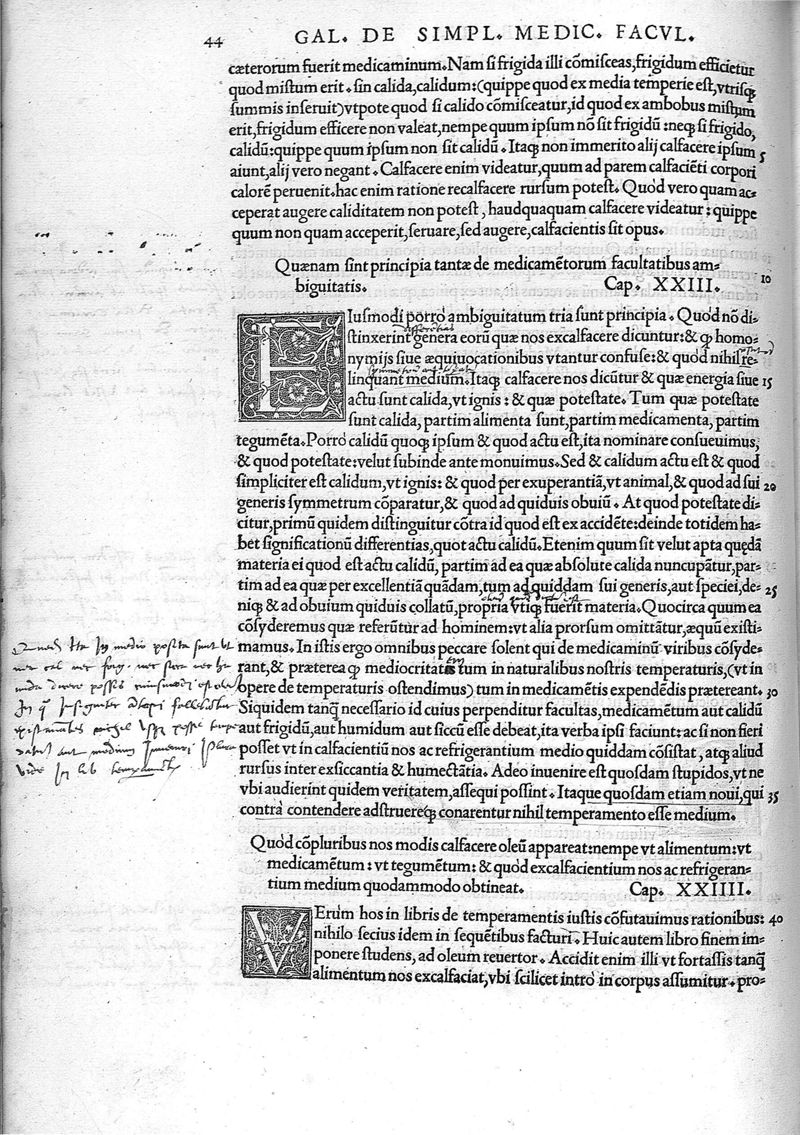 44 GAL. DE SIMPL. MEDIC. FACVL.
cæterorum fuerit medicaminum. Nam si frigida illi cōmisceas, frigidum efficietur
quod mistum erit. sin calida, calidum: (quippe quod ex media temperie est, vtrisq;
summis inseruit) vtpote quod si calido cōmisceatur, id quod ex ambobus mistum
erit, frigidum efficere non valeat, nempe quum ipsum nō sit frigidū: neq; si frigido,
calidū: quippe quum ipsum non sit calidū. Itaq; non immerito alij calfacere ipsum 5
aiunt, alij vero negant. Calfacere enim videatur, quum ad parem calfaciēti corpori
calorē peruenit. hac enim ratione recalfacere rursum potest. Quòd vero quam ac-
ceperat augere caliditatem non potest, haudquaquam calfacere videatur: quippe
quum non quam acceperit, seruare, sed augere, calfacientis sit opus.
Quænam sint principia tantæ de medicamētorum facultatibus am- 10
biguitatis. Cap. XXIII.
EIusmodi porrò ambiguitatum tria sunt principia. Quòd nō di-
stinxerint genera eorū quæ nos excalfacere dicuntur: & q homo-
nymijs siue æquiuocationibus vtantur confuse: & quòd nihil re-
linquant medium. Itaq; calfacere nos dicūtur & quæ energia siue 15
actu sunt calida, vt ignis: & quæ potestate. Tum quæ potestate
sunt calida, partim alimenta sunt, partim medicamenta, partim
tegumēta. Porrò calidū quoq; ipsum & quod actu est, ita nominare consueuimus,
& quod potestate: velut subinde ante monuimus. Sed & calidum actu est & quod
simpliciter est calidum, vt ignis: & quod per exuperantiā, vt animal, & quod ad sui 20
generis symmetrum cōparatur, & quod ad quiduis obuiū. At quod potestate di-
citur, primū quidem distinguitur cōtra id quod est ex accidēte: deinde totidem ha-
bet significationū differentias, quot actu calidū. Etenim quum sit velut apta quędā
materia ei quod est actu calidū, partim ad ea quæ absolute calida nuncupātur, par-
tim ad ea quæ per excellentiā quādam, tum ad quiddam sui generis, aut speciei, de- 25
niq; & ad obuium quiduis collatū, propria vtiq; fuerit materia. Quocirca quum ea
cōsyderemus quæ referūtur ad hominem: vt alia prorsum omittātur, æquū existi-
mamus. In istis ergo omnibus peccare solent qui de medicaminū viribus cōsyde-
rant, & præterea q mediocritatem tum in naturalibus nostris temperaturis, (vt in
opere de temperaturis ostendimus) tum in medicamētis expendēdis prætereant. 30
Siquidem tanq; necessario id cuius perpenditur facultas, medicamētum aut calidū
aut frigidū, aut humidum aut siccū esse debeat, ita verba ipsi faciunt: ac si non fieri
posset vt in calfacientiū nos ac refrigerantium medio quiddam cōsistat, atq; aliud
rursus inter exsiccantia & humectātia. Adeo inuenire est quosdam stupidos, vt ne
vbi audierint quidem veritatem, assequi possint. Itaque quosdam etiam noui, qui 35
contrà contendere adstruereq; conarentur nihil temperamento esse medium.
Quòd cōpluribus nos modis calfacere oleū appareat: nempe vt alimentum: vt
medicamētum: vt tegumētum: & quòd excalfacientium nos ac refrigeran-
tium medium quodammodo obtineat. Cap. XXIIII.
VErum hos in libris de temperamentis iustis cōfutauimus rationibus: 40
nihilo secius idem in sequētibus facturi. Huic autem libro finem im-
ponere studens, ad oleum reuertor. Accidit enim illi vt fortassis tanq̃
alimentum nos excalfaciat, vbi scilicet intrò in corpus assumitur. pro-